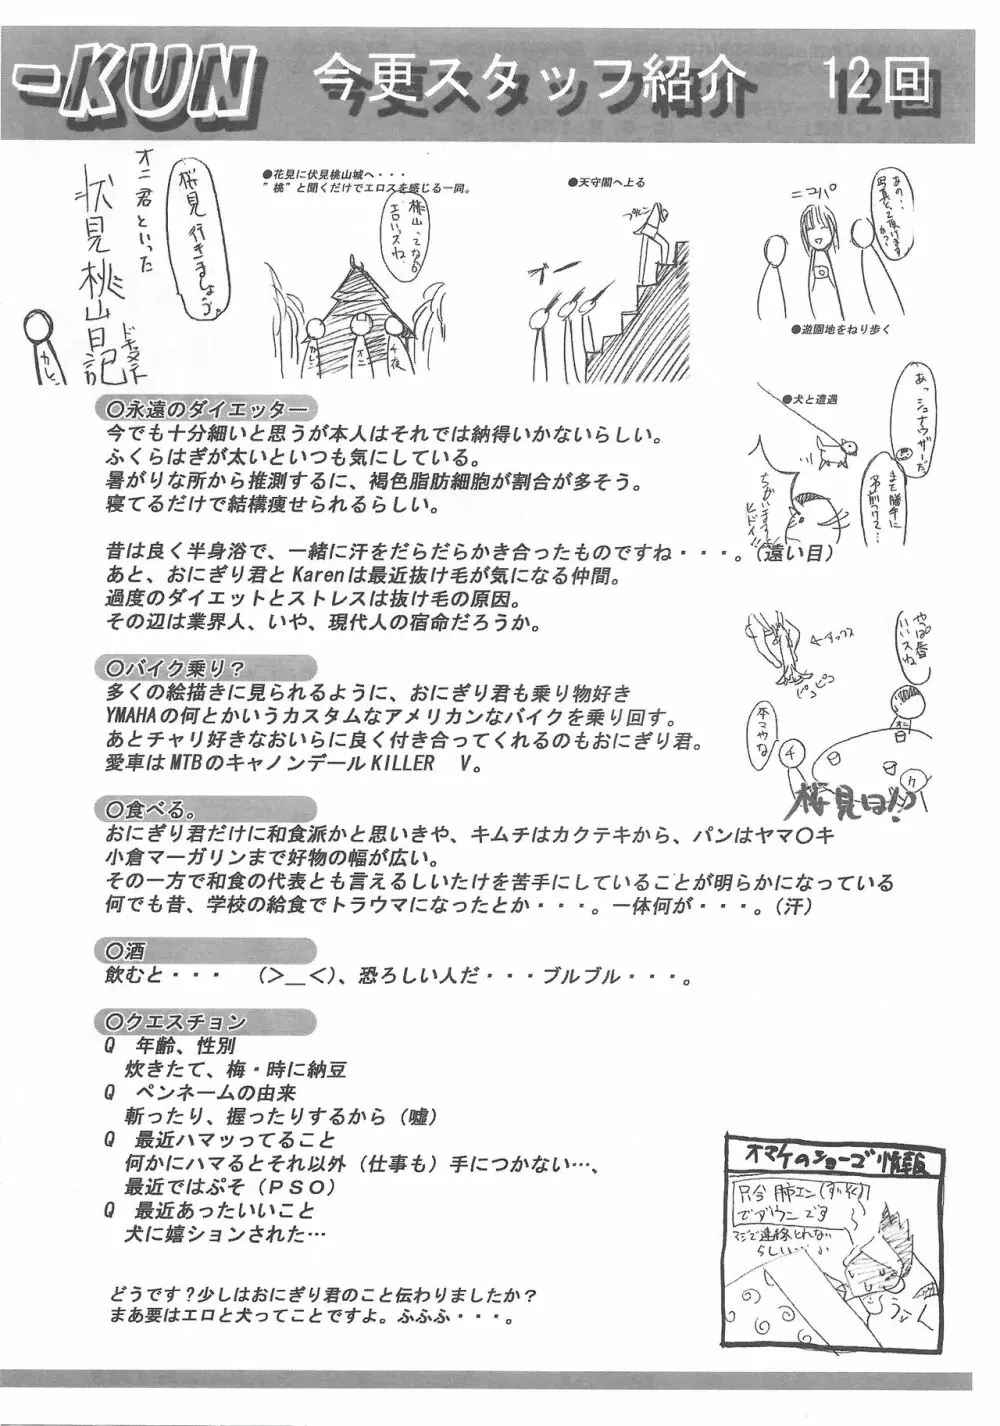 -KUN 今更スタッフ紹介 12回
桜見行きましょう。
オニ君といった
伏見桃山日記
ドキュメント
カレン
●花見に伏見桃山城へ・・・
"桃"と聞くだけでエロスを感じる一同。
桃山ってなんか
エロいっスね
カレン
オニ
千夜
●天守閣へ上る
ブー
あの・・
写真とって頂けます
ニコパ
●遊園地をねり歩く
●犬と遭遇
あっシュナウザーだ
また勝手に
名前つけて…
ちがいます
ヒドイ!!
○永遠のダイエッター
今でも十分細いと思うが本人はそれでは納得いかないらしい。
ふくらはぎが太いといつも気にしている。
暑がりな所から推測するに、褐色脂肪細胞が割合が多そう。
寝てるだけで結構痩せられるらしい。
昔は良く半身浴で、一緒に汗をだらだらかき合ったものですね・・・。(遠い目)
あと、おにぎり君とKarenは最近抜け毛が気になる仲間。
過度のダイエットとストレスは抜け毛の原因。
その辺は業界人、いや、現代人の宿命だろうか。
やっぱ春
いいスね
ピコピコ
本マやな
オニ
チ
カ
桜見は!?
○バイク乗り?
多くの絵描きに見られるように、おにぎり君も乗り物好き
YMAHAの何とかいうカスタムなアメリカンなバイクを乗り回す。
あとチャリ好きなおいらに良く付き合ってくれるのもおにぎり君。
愛車はMTBのキャノンデールKILLER V。
○食べる。
おにぎり君だけに和食派かと思いきや、キムチはカクテキから、パンはヤマ○キ
小倉マーガリンまで好物の幅が広い。
その一方で和食の代表とも言えるしいたけを苦手にしていることが明らかになっている
何でも昔、学校の給食でトラウマになったとか・・・。一体何が・・・。(汗)
○酒
飲むと・・・ (>__<)、恐ろしい人だ・・・ブルブル・・・。
○クエスチョン
Q 年齢、性別
炊きたて、梅・時に納豆
Q ペンネームの由来
斬ったり、握ったりするから(嘘)
Q 最近ハマッってること
何かにハマるとそれ以外(仕事も)手につかない…、
最近ではぷそ(PSO)
Q 最近あったいいこと
犬に嬉ションされた…
どうです?少しはおにぎり君のこと伝わりましたか?
まあ要はエロと犬ってことですよ。ふふふ・・・。
オマケのショーゴ情報
只今肺エン
でダウンです
マジで連絡とれない
らしい…